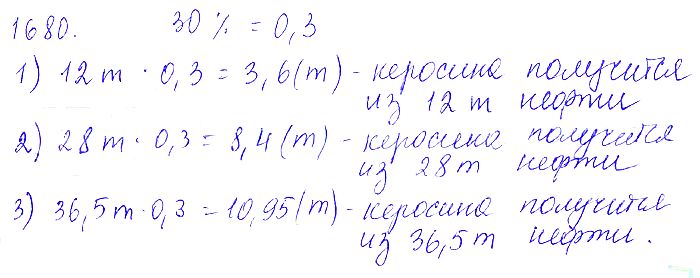 1680. 30 % = 0,3
1) 12 т · 0,3 = 3,6 (т) - керосина получится
из 12 т нефти
2) 28 т · 0,3 = 8,4 (т) - керосина получится
из 28 т нефти
3) 36,5 т · 0,3 = 10,95 (т) - керосина получится
из 36,5 т нефти.